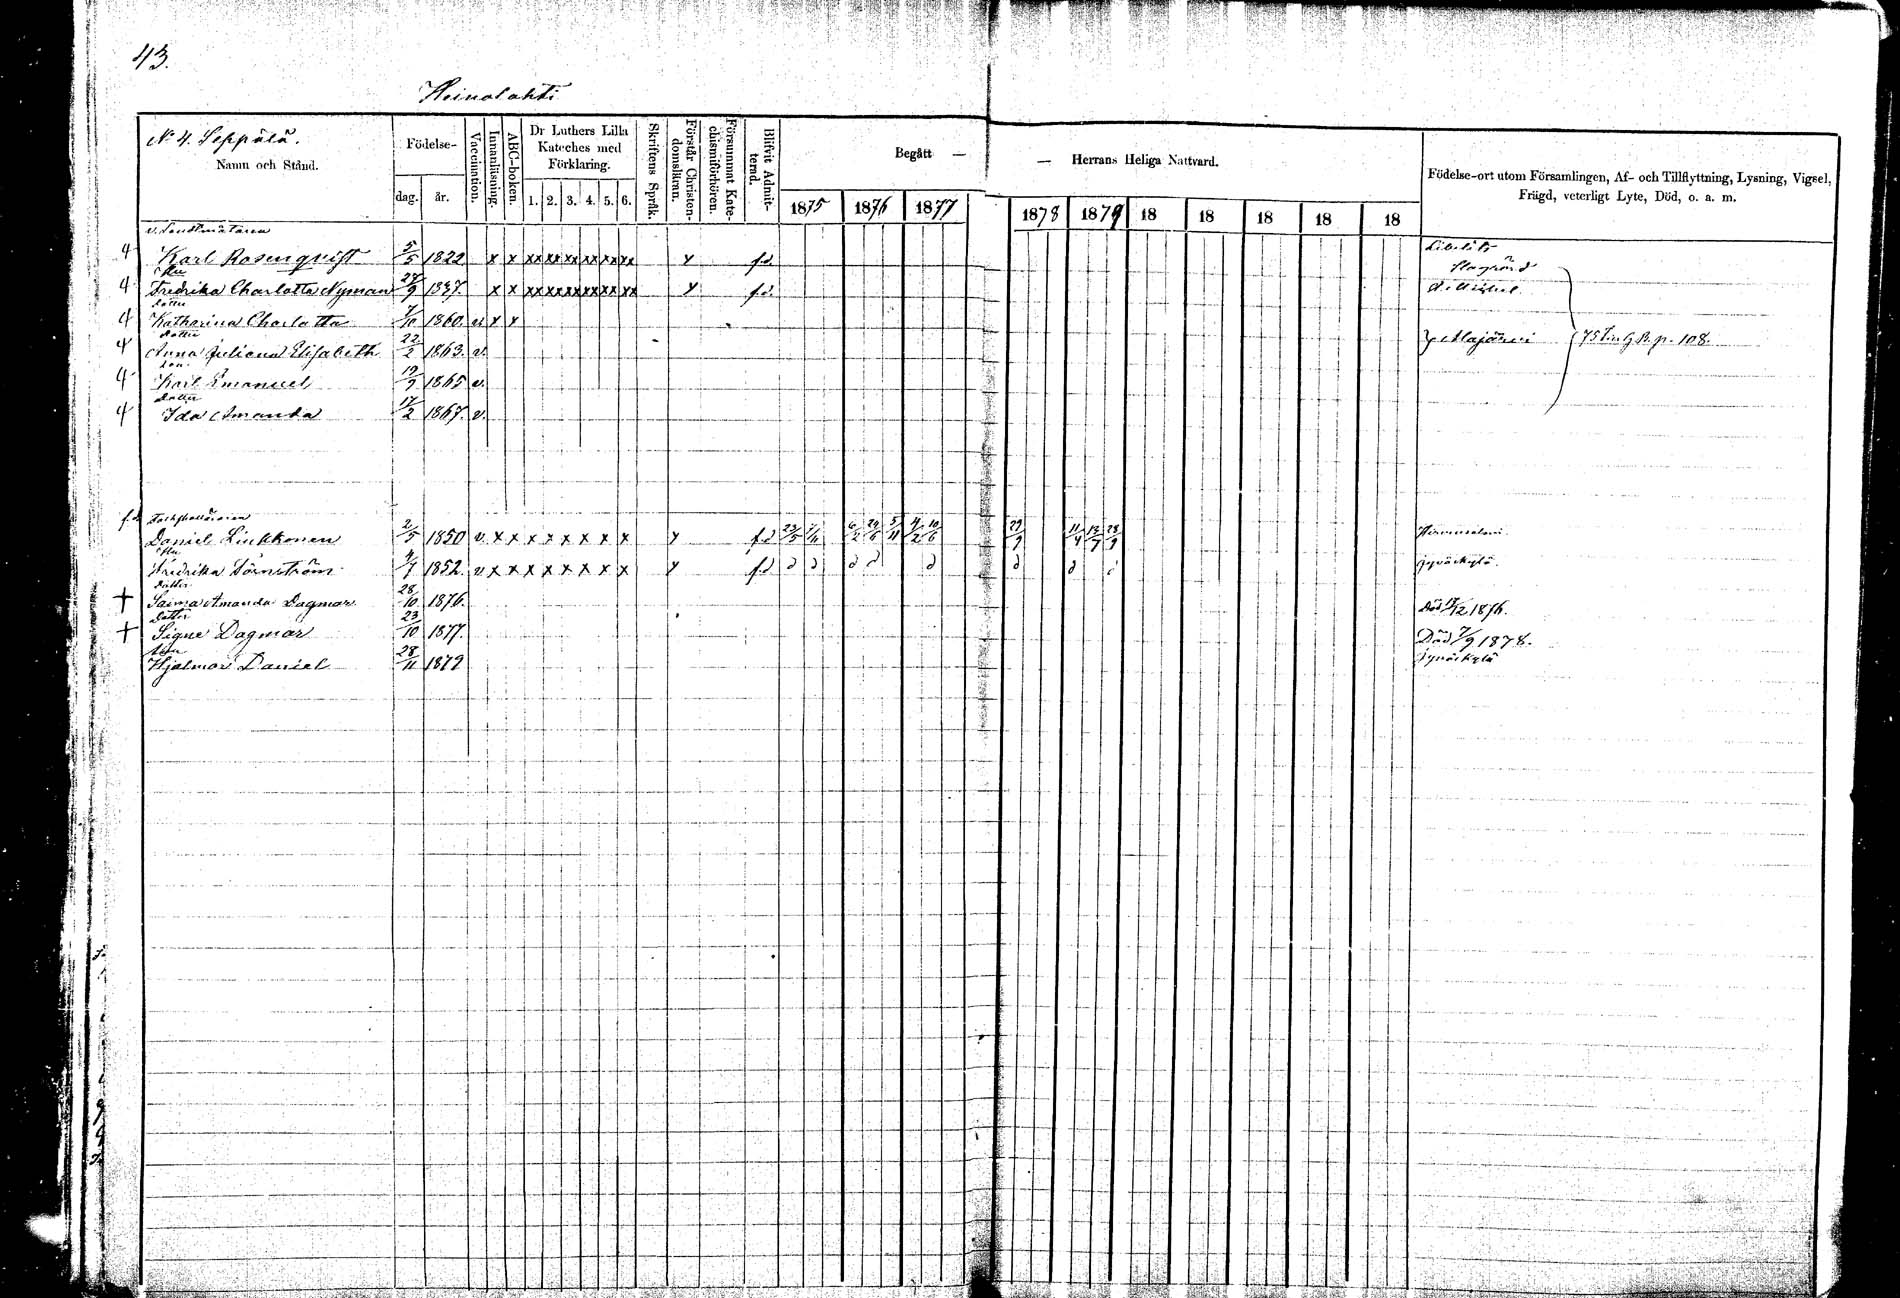 43.
Heinolahti
No 4. Seppälä.
Namn och Stånd.
Födelse-
dag. år.
Vaccination.
Innanläsning.
ABC-boken.
Dr Luthers Lilla Kateches med Förklaring.
1. 2. 3. 4. 5. 6.
Skriftens Språk.
Förstår Christendomsläran.
Försummat Katechismiförhören.
Blifvit Admitterad.
Begått — — Herrans Heliga Nattvard.
1875 1876 1877 1878 1879 18 18 18 18 18
Födelse-ort utom Församlingen, Af- och Tillflyttning, Lysning, Vigsel,
Frägd, veterligt Lyte, Död, o. a. m.
v. Landtmätaren
4 Karl Rosenqvist 5/5 1822 x x xx xx xx xx xx xx x f.d. Libelits
4 Fredrika Charlotta Nyman 24/9 1837. x x xx xx xx xx xx xx x f.d.
Dotter
4 Katharina Charlotta 7/10 1860. v. x x
Dotter
4 Anna Juliana Elisabeth 22/2 1863. v. Majärvi 75 p. 108.
Son
4 Karl Emanuel 19/9 1865 v.
Dotter
4 Ida Amanda 17/2 1867. v.
Daniel Linkkonen 2/5 1850 v. x x x x x x x x x f.d 23/5 6/2 24/6 5/11 4/2 10/6 29/9 11/4 13/7 28/9
Fredrika Törnström 4/7 1852. v x x x x x x x x x f.d Jyväskylä.
Dotter
+ Saima Amanda Dagmar 28/10 1876. Död 17/12 1876.
Dotter
+ Signe Dagmar 23/10 1877. Död 7/9 1878.
Son
Hjalmar Daniel 28/11 1879 Jyväskylä